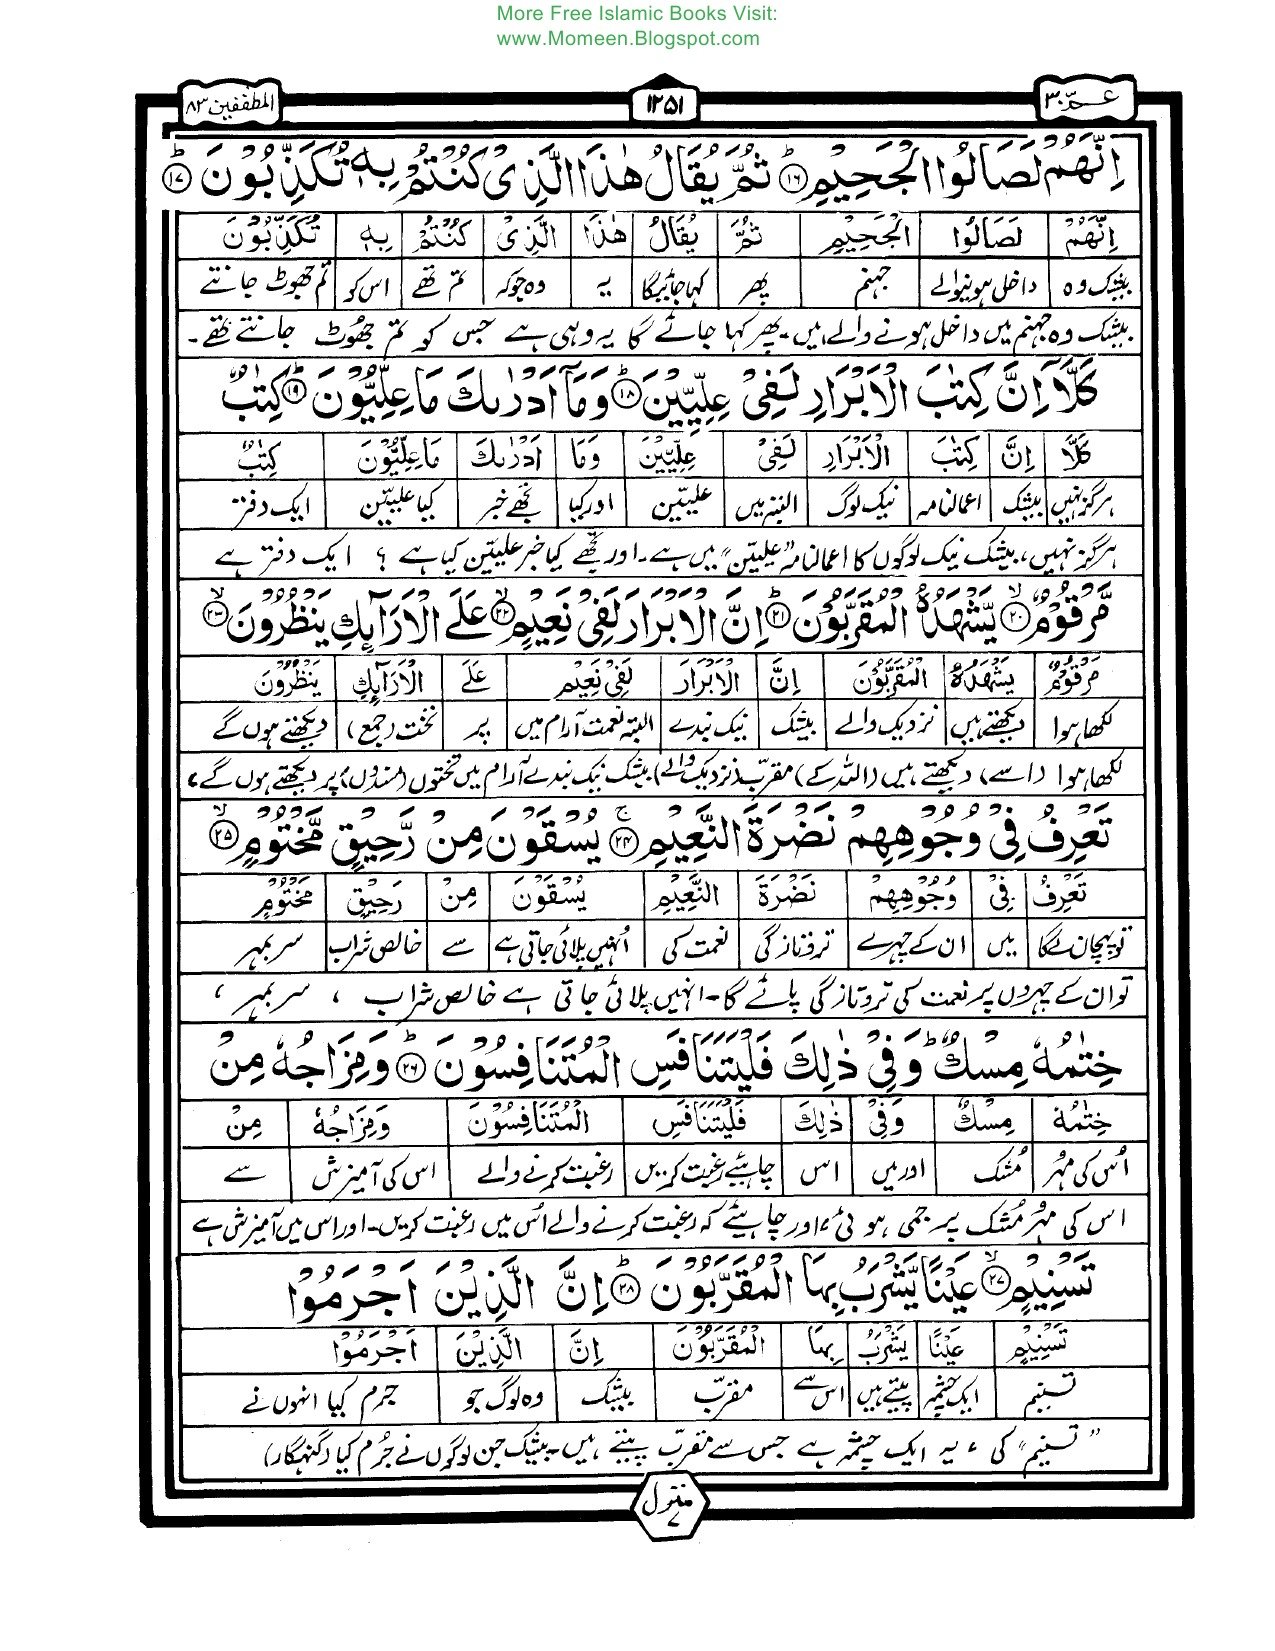 More Free Islamic Books Visit:
www.Momeen.Blogspot.com
عمّ ۳۰
۱۲۵۱
المطففين ۸۳
اِنَّهُمْ لَصَالُوا الْجَحِيْمِ ؕ ۱۶ ثُمَّ يُقَالُ هٰذَا الَّذِيْ كُنْتُمْ بِهٖ تُكَذِّبُوْنَ ؕ ۱۷
اِنَّهُمْ لَصَالُوا الْجَحِيْمِ ثُمَّ يُقَالُ هٰذَا الَّذِيْ كُنْتُمْ بِهٖ تُكَذِّبُوْنَ
بیشک وہ داخل ہونیوالے جہنم پھر کہا جائیگا یہ وہ جوکہ تم تھے اس کو تم جھوٹ جانتے
بیشک وہ جہنم میں داخل ہونے والے ہیں۔ پھر کہا جائے گا یہ وہی ہے جس کو تم جھوٹ جانتے تھے۔
كَلَّاۤ اِنَّ كِتٰبَ الْاَبْرَارِ لَفِيْ عِلِّيِّيْنَ ؕ ۱۸ وَمَاۤ اَدْرٰىكَ مَا عِلِّيُّوْنَ ؕ ۱۹ كِتٰبٌ
كَلَّا اِنَّ كِتٰبَ الْاَبْرَارِ لَفِيْ عِلِّيِّيْنَ وَمَا اَدْرٰىكَ مَا عِلِّيُّوْنَ كِتٰبٌ
ہرگز نہیں بیشک اعمالنامہ نیک لوگ البتہ میں علیین اور کیا تجھے خبر کیا علیین ایک دفتر
ہرگز نہیں، بیشک نیک لوگوں کا اعمالنامہ "علیین" میں ہے۔ اور تجھے کیا خبر علیین کیا ہے ؟ ایک دفتر ہے
مَّرْقُوْمٌ ۙ ۲۰ يَّشْهَدُهُ الْمُقَرَّبُوْنَ ؕ ۲۱ اِنَّ الْاَبْرَارَ لَفِيْ نَعِيْمٍ ۙ ۲۲ عَلَى الْاَرَآئِكِ يَنْظُرُوْنَ ۙ ۲۳
مَرْقُوْمٌ يَشْهَدُهُ الْمُقَرَّبُوْنَ اِنَّ الْاَبْرَارَ لَفِيْ نَعِيْمٍ عَلَى الْاَرَآئِكِ يَنْظُرُوْنَ
لکھا ہوا دیکھتے ہیں نزدیک والے بیشک نیک بندے البتہ نعمت آرام میں پر تخت (جمع) دیکھتے ہوں گے
لکھا ہوا (اسے) دیکھتے ہیں (اللہ کے) مقرب (نزدیک والے) بیشک نیک بندے آرام میں تختوں (مسندوں) پر دیکھتے ہوں گے،
تَعْرِفُ فِيْ وُجُوْهِهِمْ نَضْرَةَ النَّعِيْمِ ۚ ۲۴ يُسْقَوْنَ مِنْ رَّحِيْقٍ مَّخْتُوْمٍ ۙ ۲۵
تَعْرِفُ فِيْ وُجُوْهِهِمْ نَضْرَةَ النَّعِيْمِ يُسْقَوْنَ مِنْ رَحِيْقٍ مَخْتُوْمٍ
تو پہچان لے گا میں ان کے چہرے تر و تازگی نعمت کی اُنہیں پلائی جاتی ہے سے خالص شراب سر بمہر
تو ان کے چہروں پر نعمت کی تر و تازگی پائے گا۔ انہیں پلائی جاتی ہے خالص شراب ، سر بمہر ،
خِتٰمُهٗ مِسْكٌ ؕ وَفِيْ ذٰلِكَ فَلْيَتَنَافَسِ الْمُتَنَافِسُوْنَ ؕ ۲۶ وَمِزَاجُهٗ مِنْ
خِتٰمُهٗ مِسْكٌ وَفِيْ ذٰلِكَ فَلْيَتَنَافَسِ الْمُتَنَافِسُوْنَ وَمِزَاجُهٗ مِنْ
اُس کی مُہر مُشک اور میں اس چاہیے رغبت کریں رغبت کرنے والے اس کی آمیزش سے
اس کی مہر مُشک پر جمی ہوئی، اور چاہیئے کہ رغبت کرنے والے اُس میں رغبت کریں۔ اور اس میں آمیزش ہے
تَسْنِيْمٍ ۙ ۲۷ عَيْنًا يَّشْرَبُ بِهَا الْمُقَرَّبُوْنَ ؕ ۲۸ اِنَّ الَّذِيْنَ اَجْرَمُوْا
تَسْنِيْمٍ عَيْنًا يَشْرَبُ بِهَا الْمُقَرَّبُوْنَ اِنَّ الَّذِيْنَ اَجْرَمُوْا
تسنیم ایک چشمہ پیتے ہیں اس سے مقرب بیشک وہ لوگ جو جرم کیا انہوں نے
"تسنیم" کی ، یہ ایک چشمہ ہے جس سے مقرب پیتے ہیں۔ بیشک جن لوگوں نے جُرم کیا (گنہگار)
منزل ۷